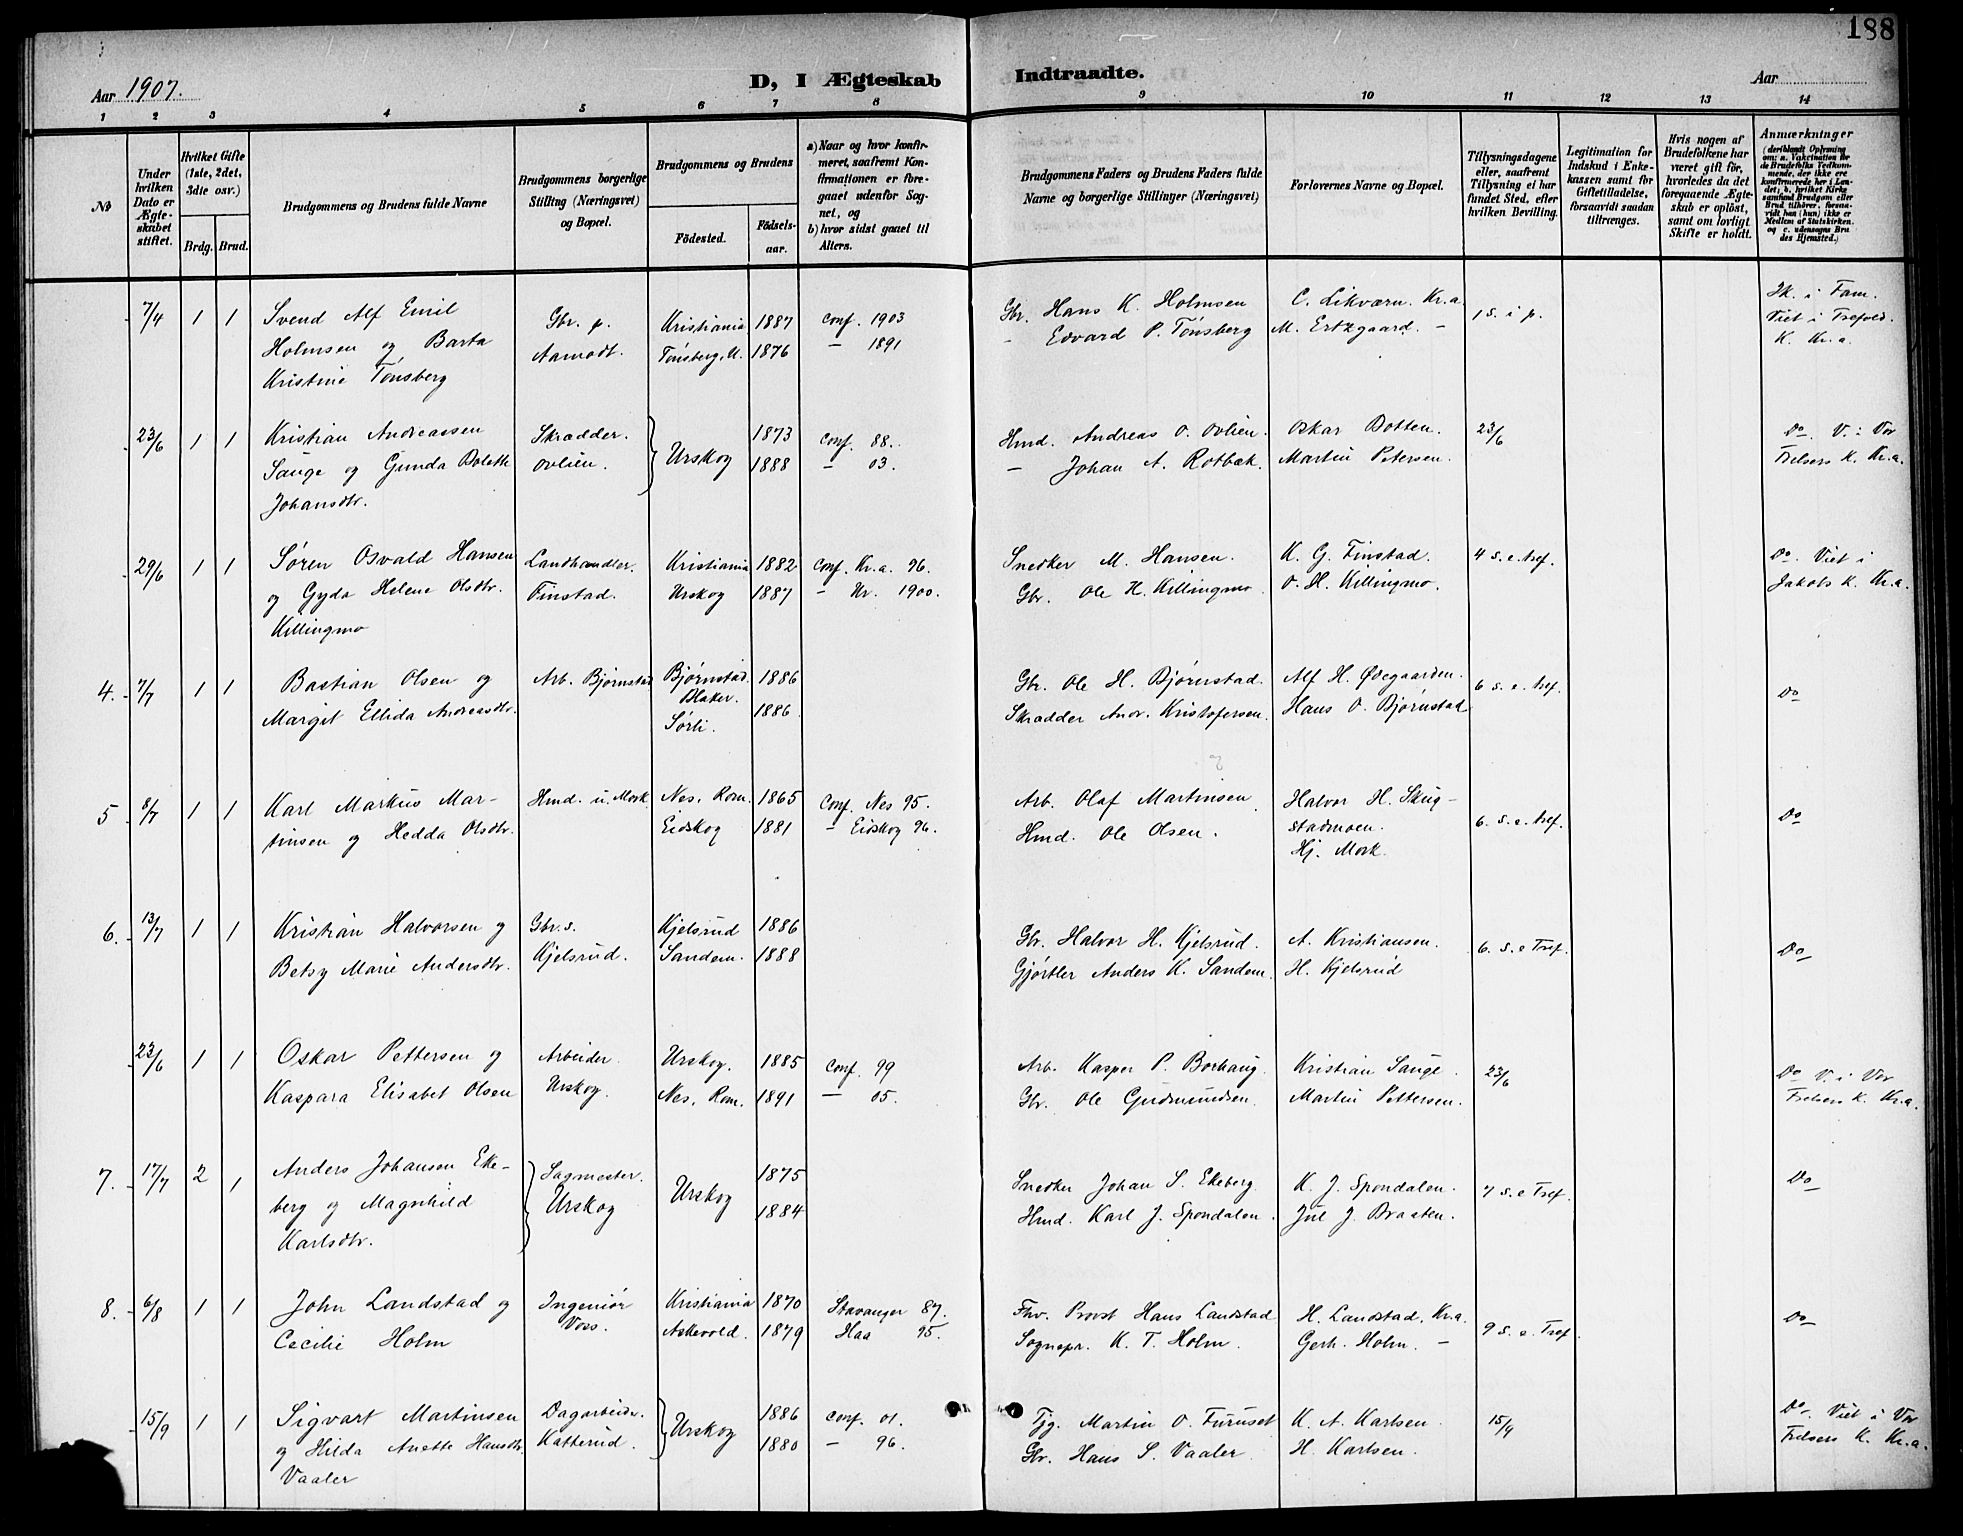 188
Aar 1907.
D, I Ægteskab
Indtraadte.
Aar
1 2 3 4 5 6 7 8 9 10 11 12 13 14
No
Under hvilken Dato er Ægteskabet stiftet.
Hvilket Gifte (1ste, 2det, 3die osv.)
Brdg. Brud.
Brudgommens og Brudens fulde Navne
Brudgommens borgerlige Stilling (Næringsvei) og Bopæl.
Brudgommens og Brudens
Födested.
Födselsaar.
a) Naar og hvor konfirmeret, saafremt Konfirmationen er foregaaet udenfor Sognet, og
b) hvor sidst gaaet til Alters.
Brudgommens Faders og Brudens Faders fulde Navne og borgerlige Stillinger (Næringsvei)
Forlovernes Navne og Bopæl.
Tillysningsdagene eller, saafremt Tillysning ei har fundet Sted, efter hvilken Bevilling.
Legitimation for Indskud i Enkekassen samt for Giftetilladelse, forsaavidt saadan tiltrænges.
Hvis nogen af Brudefolkene har været gift för, hvorledes da det foregaaende Ægteskab er oplöst, samt om lovligt Skifte er holdt.
Anmærkninger (deriblandt Oplysning om: a. Vaccination for de Brudefolks Vedkommende, der ikke ere konfirmerede her i Landet; b. hvilket Kirkesamfund Brudgom eller Brud tilhörer, forsaavidt han (hun) ikke er Medlem af Statskirken, og c. udensogns Brudes Hjemsted.)
7/4 1 1 Svend Alf Emil Gbr. p. Kristiania 1887 conf. 1903 Gbr. Hans K. Holmsen C. Likværn. Kr.a 1 S. i p. Ik. i Fam.
Holmsen og Barta Aamodt. Tønsberg. U. 1876 — 1891 — Edvard P. Tønsberg M. Ertzgaard. — Viet i Trefold.
Kristine Tønsberg K. Kr.a.
23/6 1 1 Kristian Andreassen Skrædder. Urskog 1873 conf. 88. Hmd. Andreas O. Ovlien. Oskar Botten. 23/6 Do. V. i Vor
Sauge og Gunda Bolette Ovlien. 1888 — 03. — Johan A. Rotbæk. Martin Petersen. Frelsers K. Kr.a.
Johansdtr.
29/6 1 1 Søren Osvald Hansen Landhandler. Kristiania 1882 conf. Kr.a. 96. Snedker M. Hansen. K. G. Finstad. 4 S. e. tref. Do. Viet i
og Gyda Helene Olsdtr. Finstad. Urskog 1887 — Ur. 1900. Gbr. Ole H. Killingmo O. H. Killingmo. Jakobs K. Kr.a.
Killingmo
4. 7/7 1 1 Bastian Olsen og Arb. Bjørnstad Bjørnstad. 1886 Gbr. Ole H. Bjørnstad. Alf H. Ødegaarden. 6 S. e. tref. Do
Blaker.
Margit Ellida Andreasdtr. Sørli. 1886 Skrædder Andr. Kristofersen. Hans O. Bjørnstad
5 8/7 1 1 Karl Markus Mar- Hmd. u. Mork Nes. Rom. 1865 Conf. Nes 95. Arb. Olaf Martinsen Halvor H. Skug- 6. S. e. tref. Do
tinsen og Hedda Olsdtr. Eidskog 1881 — Eidskog 96. Hmd. Ole Olsen. stadmoen.
Hj. Mork.
6. 13/7 1 1 Kristian Halvorsen og Gbr. s. Kjelsrud 1886 Gbr. Halvor H. Kjelsrud. A. Kristiansen. 6. S. e Tref. Do
Betsy Marie Andersdtr. Kjelsrud. Sandem. 1888 Gjørtler Anders K. Sandem. H. Kjelsrud
23/6 1 1 Oskar Pettersen og Arbeider. Urskog. 1885 conf. 99 Arb. Kasper P. Borhaug. Kristian Sauge. 23/6 Do V. i Vor
Kaspara Elisabet Olsen Urskog. Nes. Rom. 1891 — 05. Gbr. Ole Gudmundsen. Martin Pettersen. Frelsers K. Kr.a.
7. 17/7 2 1 Anders Johansen Eke- Sagmester. Urskog 1875 Snedker Johan S. Ekeberg. K. J. Spondalen. 7 S. e Tref. Do
berg og Magnhild Urskog 1884 Hmd. Karl J. Spondalen. Jul J. Braaten.
Karlsdtr.
8. 6/8 1 1 John Landstad og Ingeniør Kristiania 1870 Stavanger 87. Fhv. Provst Hans Landstad H. Landstad. Kr.a. 9 S. e. Tref. Do
Cecilie Holm Voss. Askevold. 1879 Haa 95. Sognepr. K. T. Holm. Gerh. Holm. —
15/9 1 1 Sigvart Martinsen Dagarbeider. Urskog 1886 conf. 01. Tjg. Martin O. Furuset K. A. Karlsen. 15/9 Do. Viet i Vor
og Hilda Anette Hansdtr. Katterud. 1880 — 96. Gbr. Hans S. Vaaler H. Karlsen. Frelsers K. Kr.a.
Vaaler